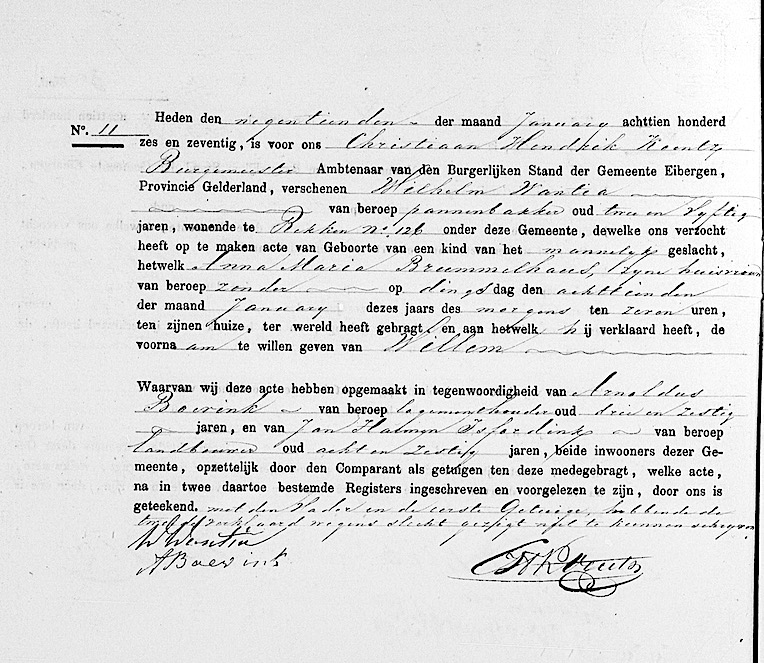 Heden den negentienden der maand January achttien honderd
No. 11
zes en zeventig, is voor ons Christiaan Hendrik
Burgemeester Ambtenaar van den Burgerlijken Stand der Gemeente Eibergen,
Provincie Gelderland, verschenen Wilhelm Wantia
van beroep pannenbakker oud twee en vyftig
jaren, wonende te Rekken No. 126 onder deze Gemeente, dewelke ons verzocht
heeft op te maken acte van Geboorte van een kind van het mannelyk geslacht,
hetwelk Anna Maria Brummelhaus, zyne huisvrouw
van beroep zonder op dingsdag den achttienden
der maand January dezes jaars des morgens ten zeven uren,
ten zijnen huize, ter wereld heeft gebragt, en aan hetwelk hij verklaard heeft, de
voornaam te willen geven van Willem
Waarvan wij deze acte hebben opgemaakt in tegenwoordigheid van Arnoldus
Boevink van beroep logementhouder oud drie en zestig
jaren, en van Jan Harmen Isfordink van beroep
landbouwer oud acht en zestig jaren, beide inwoners dezer Ge-
meente, opzettelijk door den Comparant als getuigen ten deze medegebragt, welke acte,
na in twee daartoe bestemde Registers ingeschreven en voorgelezen te zijn, door ons is
geteekend. met den Vader en de eerste Getuige, hebbende de
tweede verklaard wegens slecht gezigt niet te kunnen schryven
W Wantia
A Boevink